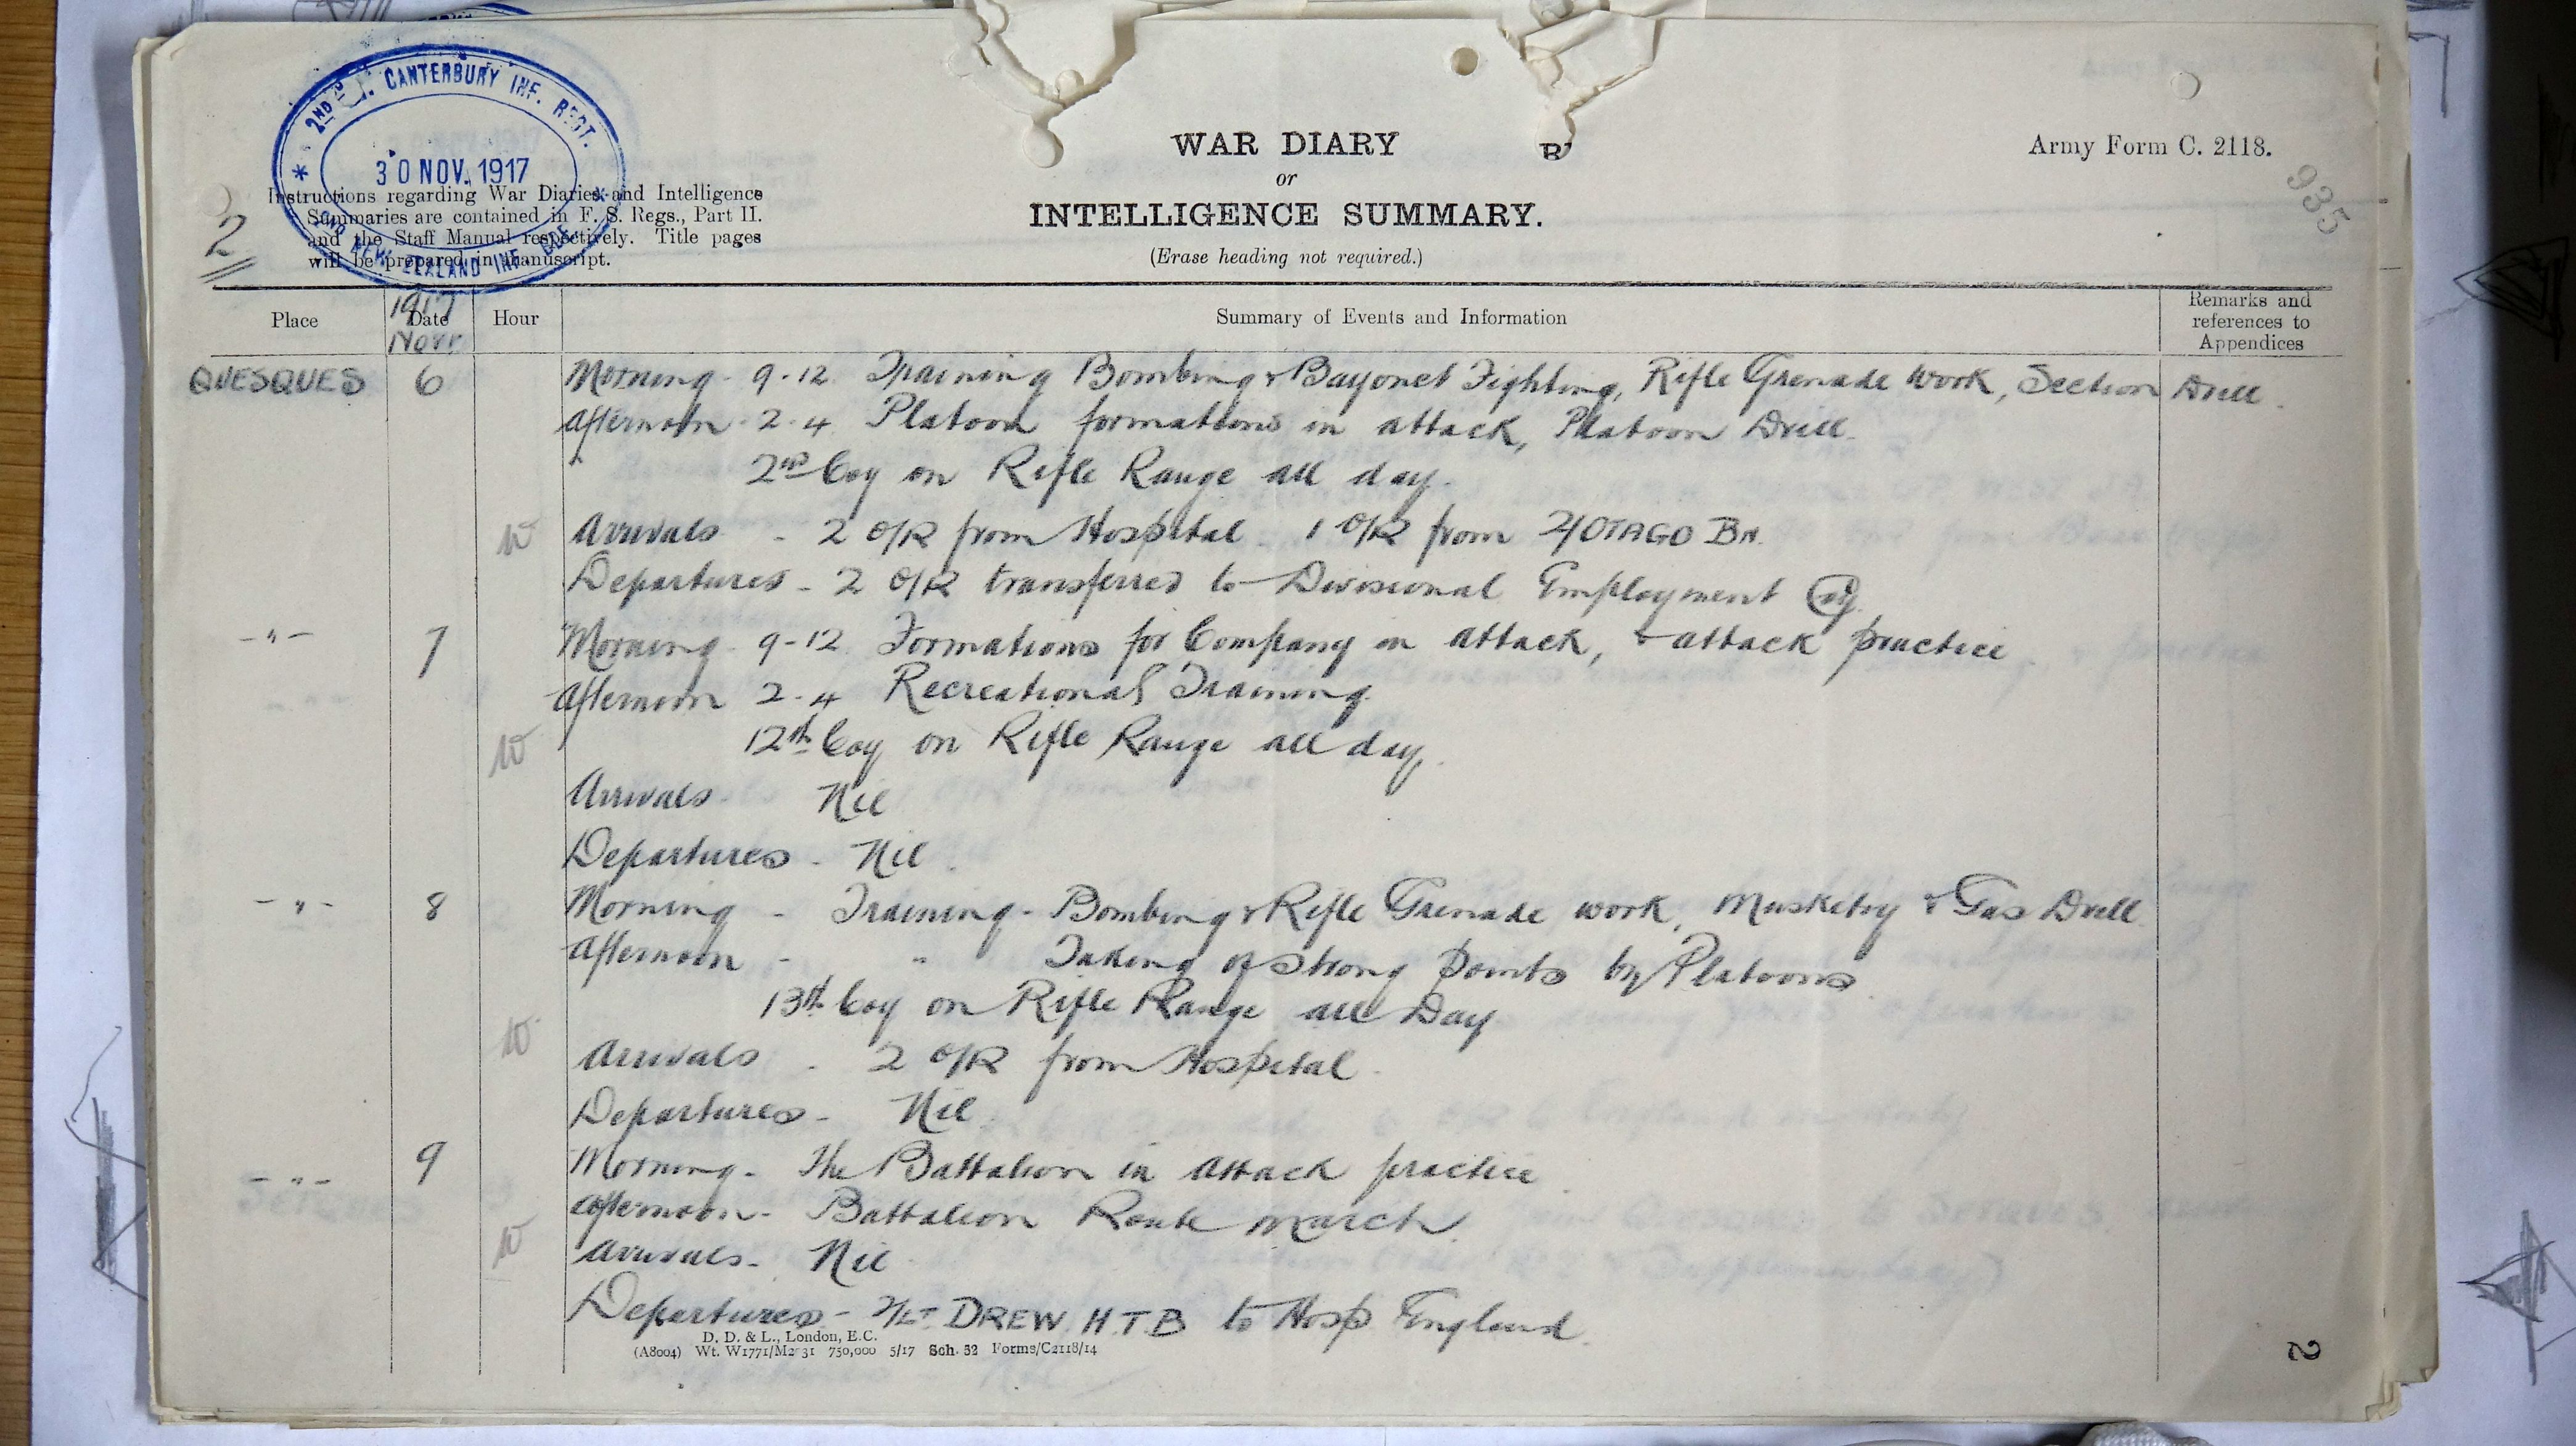 2ND BN. CANTERBURY INF. REGT.
30 NOV. 1917
2ND NEW ZEALAND INF. BDE.
2
Instructions regarding War Diaries and Intelligence
Summaries are contained in F. S. Regs., Part II.
and the Staff Manual respectively. Title pages
will be prepared in manuscript.
WAR DIARY
or
INTELLIGENCE SUMMARY.
(Erase heading not required.)
Army Form C. 2118.
935
Place
1917
Date
Novr
Hour
Summary of Events and Information
Remarks and
references to
Appendices
QUESQUES 6 Morning - 9-12 Training Bombing & Bayonet Fighting, Rifle Grenade Work, Section Drill.
Afternoon - 2-4 Platoon formations in attack, Platoon Drill.
2nd Coy on Rifle Range all day.
Arrivals - 2 O/R from Hospital. 1 O/R from 2/OTAGO BN.
Departures - 2 O/R transferred to Divisional Employment Coy.
-"- 7 Morning - 9-12 Formations for Company in attack, & attack practice
Afternoon 2-4 Recreational Training.
12th Coy on Rifle Range all day.
Arrivals Nil
Departures - Nil.
-"- 8 Morning - Training - Bombing & Rifle Grenade work, Musketry & Gas Drill
Afternoon - " Taking of strong points by Platoons.
13th Coy on Rifle Range all Day
Arrivals - 2 O/R from Hospital.
Departures - Nil.
-"- 9 Morning - The Battalion in attack practice.
Afternoon - Battalion Route March.
Arrivals - Nil.
Departures - 2/LT. DREW. H.T.B to Hosp England.
D. D. & L., London, E.C.
(A8004) Wt. W1771/M2031 750,000 5/17 Sch. 52 Forms/C2118/14
2